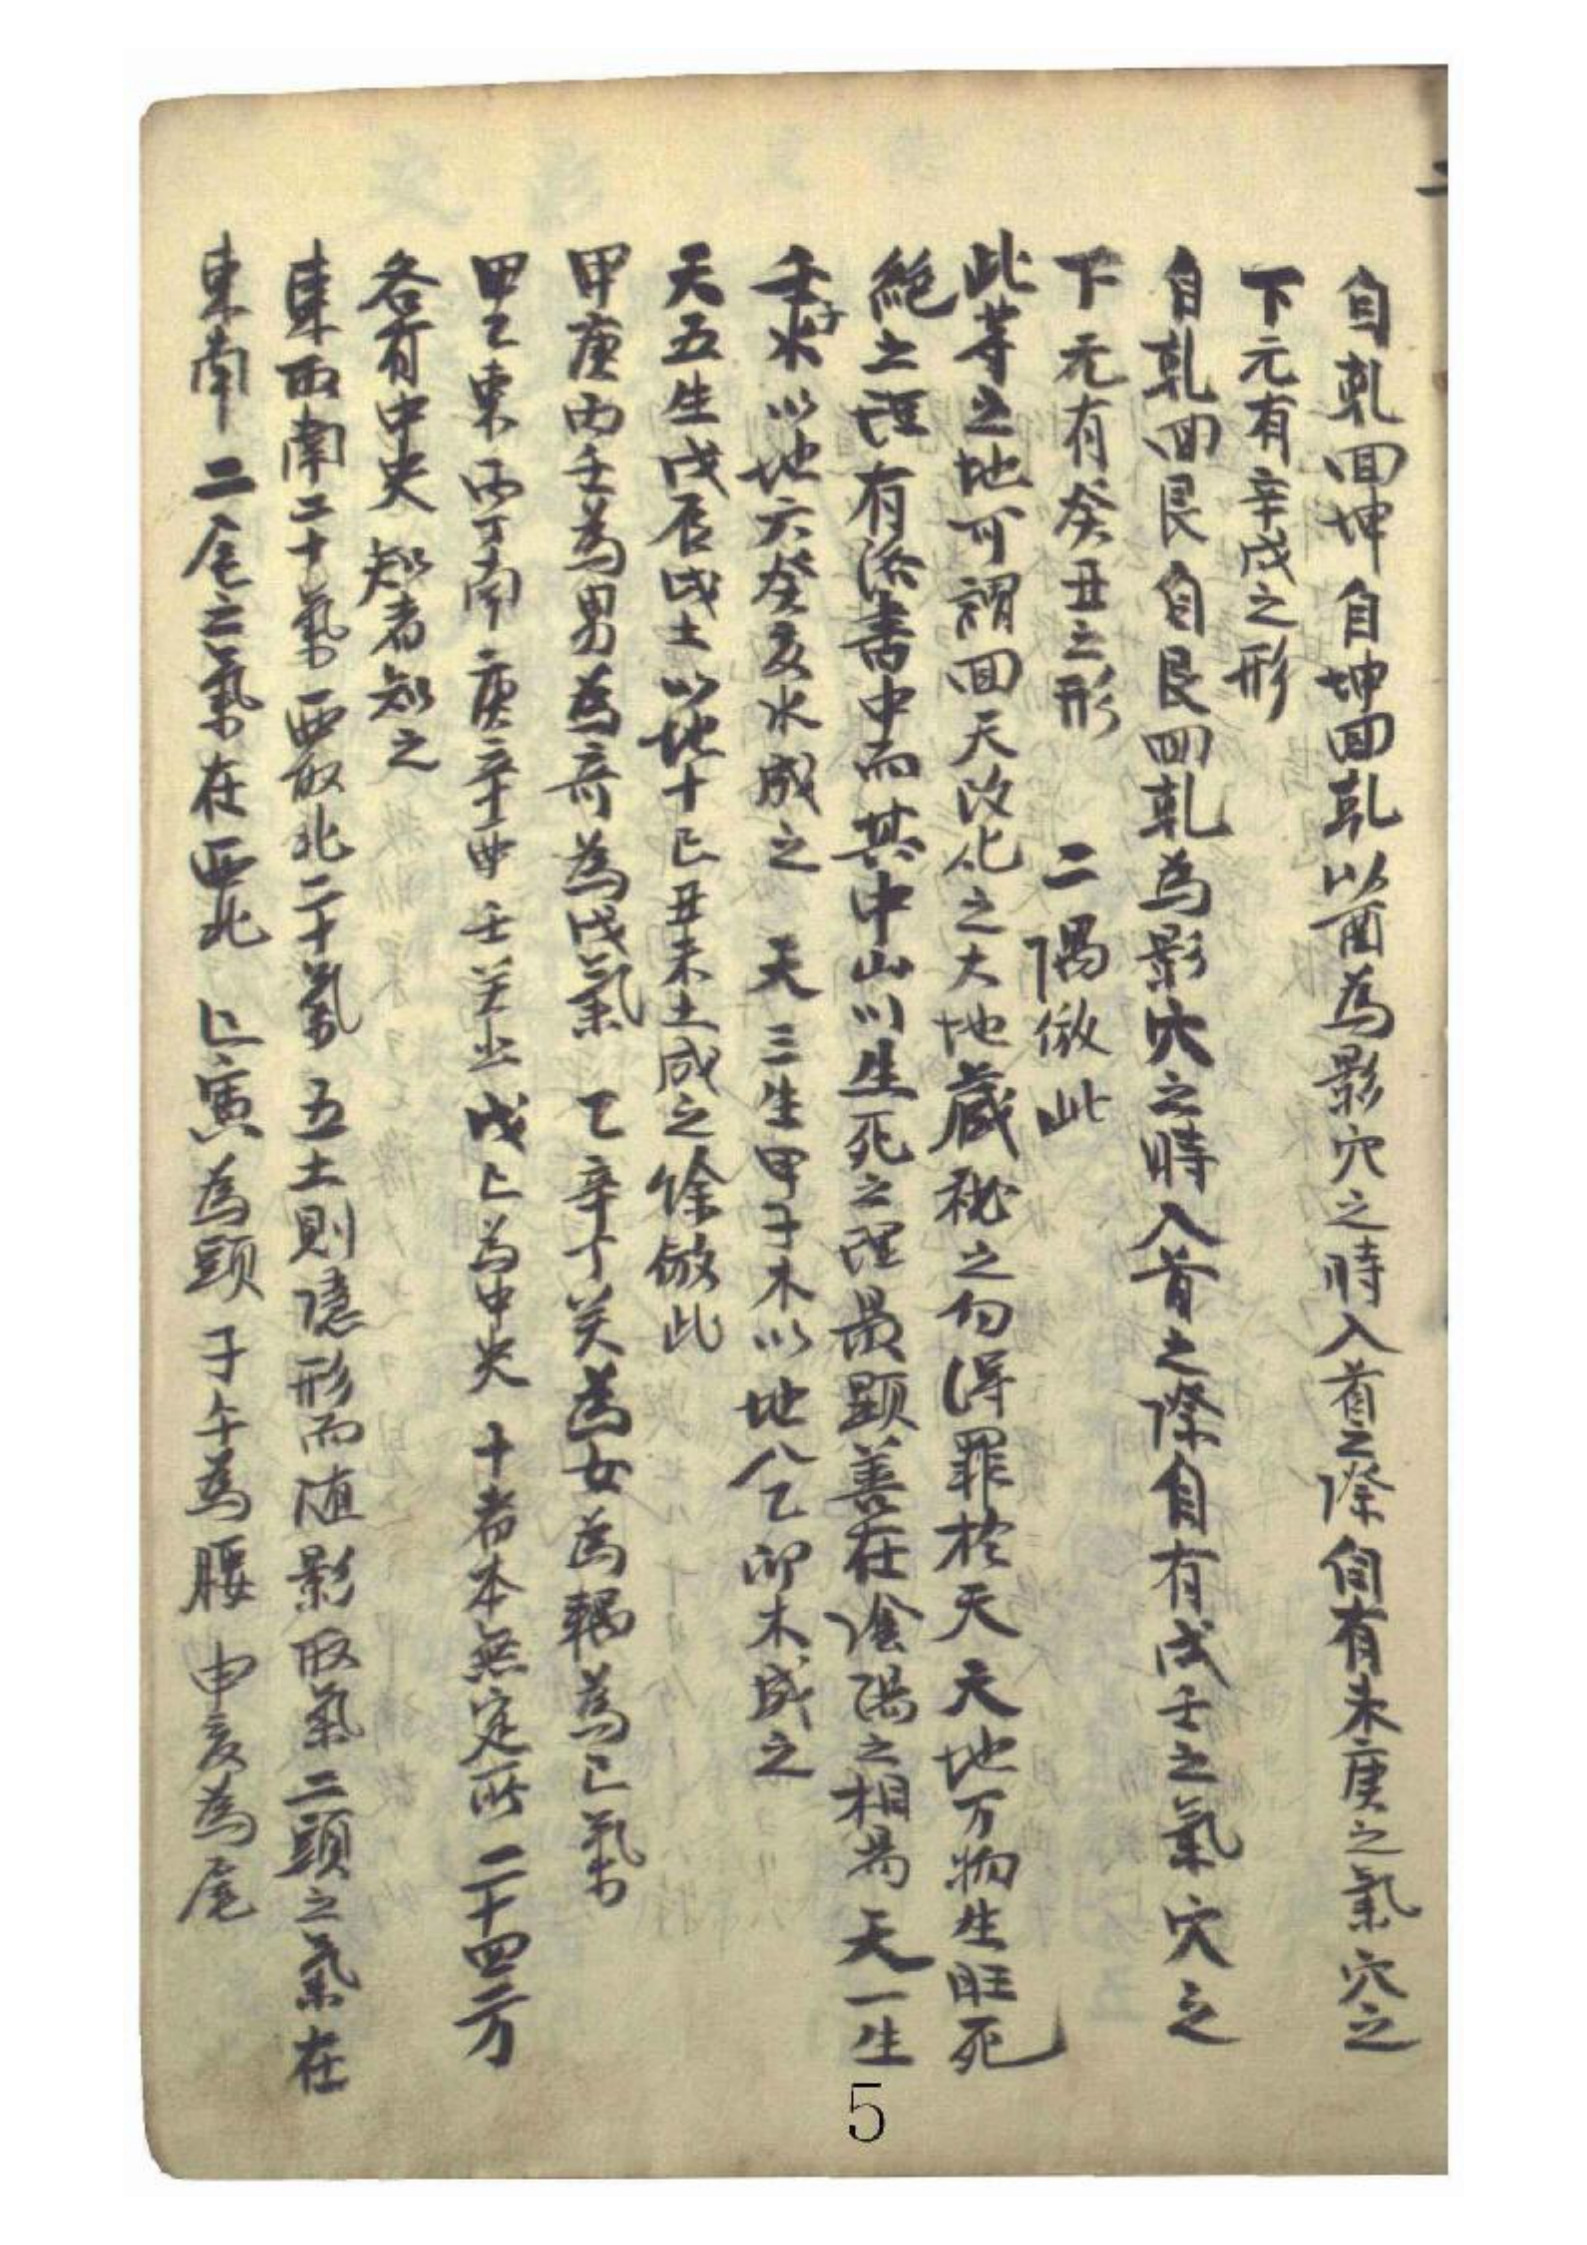 自乹回坤自坤回乹以酉為影穴之時入首之際自有未庚之氣穴之
下元有辛戌之形
自乹回艮自艮回乹為影穴之時入首之際自有戌壬之氣穴之
下元有癸丑之形 二隅倣此
此等之地可謂回天改化之大地藏秘之勿得罪於天天地万物生旺死
絕之理有洛書中而其中山川生死之理最顕善在陰陽之相為天一生
壬子水以地六癸亥水成之 天三生甲子木以地八乙卯木成之
天五生戊辰戌土以地十己丑未土成之徐倣此
甲庚丙壬為男為奇為戊氣 乙辛丁癸為女為耦為己氣
甲乙東丙丁南庚辛西壬癸北戊己為中央 十者本無定所二十四方
各有中央知者知之
東取南二十氣西取北二十氣五土則隱形而随影取氣二頭之氣在
東南二尾之氣在西北 巳寅為頭子午為腰申亥為尾
5